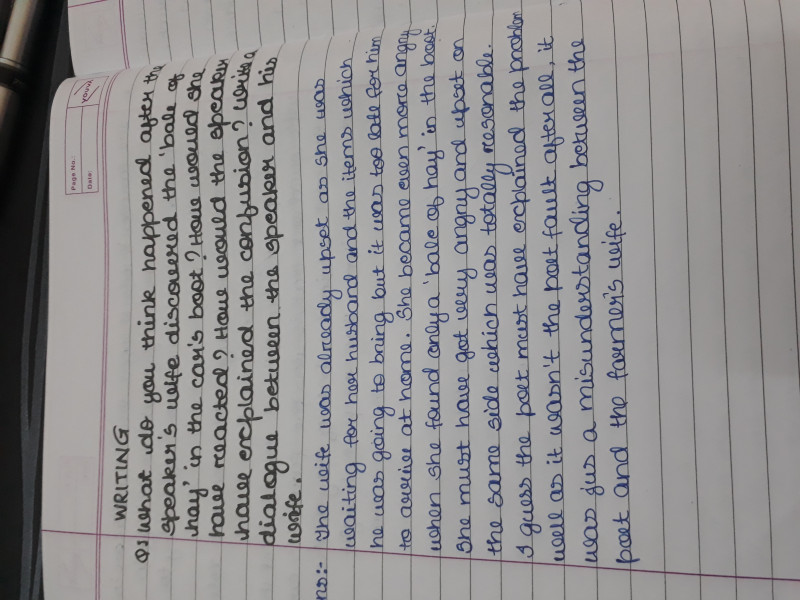 Page No.:
Date:
YOUVA
WRITING
Q1 What do you think happened after the
speaker's wife discovered the 'bale of
hay' in the car's boot? How would she
have reacted? How would the speaker
have explained the confusion? Write a
dialogue between the speaker and his
wife.
ns:- The wife was already upset as she was
waiting for her husband and the items which
he was going to bring but it was too late for him
to arrive at home. She became even more angry
when she found only a 'bale of hay' in the boot.
She must have got very angry and upset on
the same side which was totally resonable.
I guess the poet must have explained the problem
well as it wasn't the poet fault after all, it
was jus a misunderstanding between the
poet and the farmer's wife.